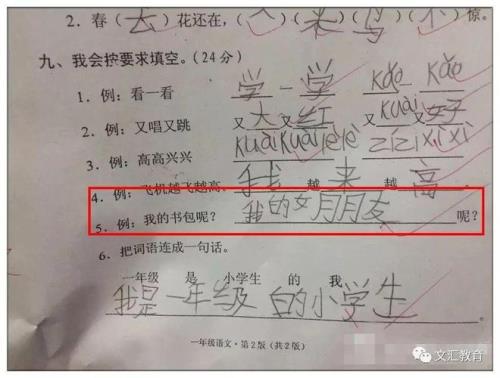 2. 春(去)花还在,(人)(来)(鸟)(不)惊。
九、我会按要求填空。(24分)
1. 例:看一看 学-学 kǎo-kǎo
2. 例:又唱又跳 又大又红 又kuài又好
3. 例:高高兴兴 kuàikuàilèlè zǐzǐxìxì
4. 例:飞机越飞越高。 我越来越高
5. 例:我的书包呢? 我的女朋友呢?
6. 把词语连成一句话。
一年级 是 小学生 的 我
我是一年级的小学生。
一年级语文·第2版(共2版)
文汇教育